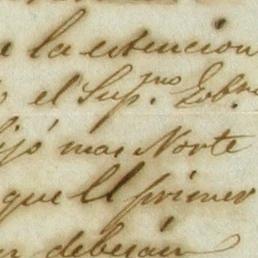 la estencion
el Sup.mo Gobno
mas Norte
que el primer
deberán